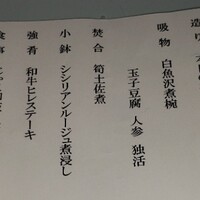 造り
吸物 白魚沢煮椀
玉子豆腐 人参 独活
焚合 筍土佐煮
小鉢 シシリアンルージュ煮浸し
強肴 和牛ヒレステーキ
食事